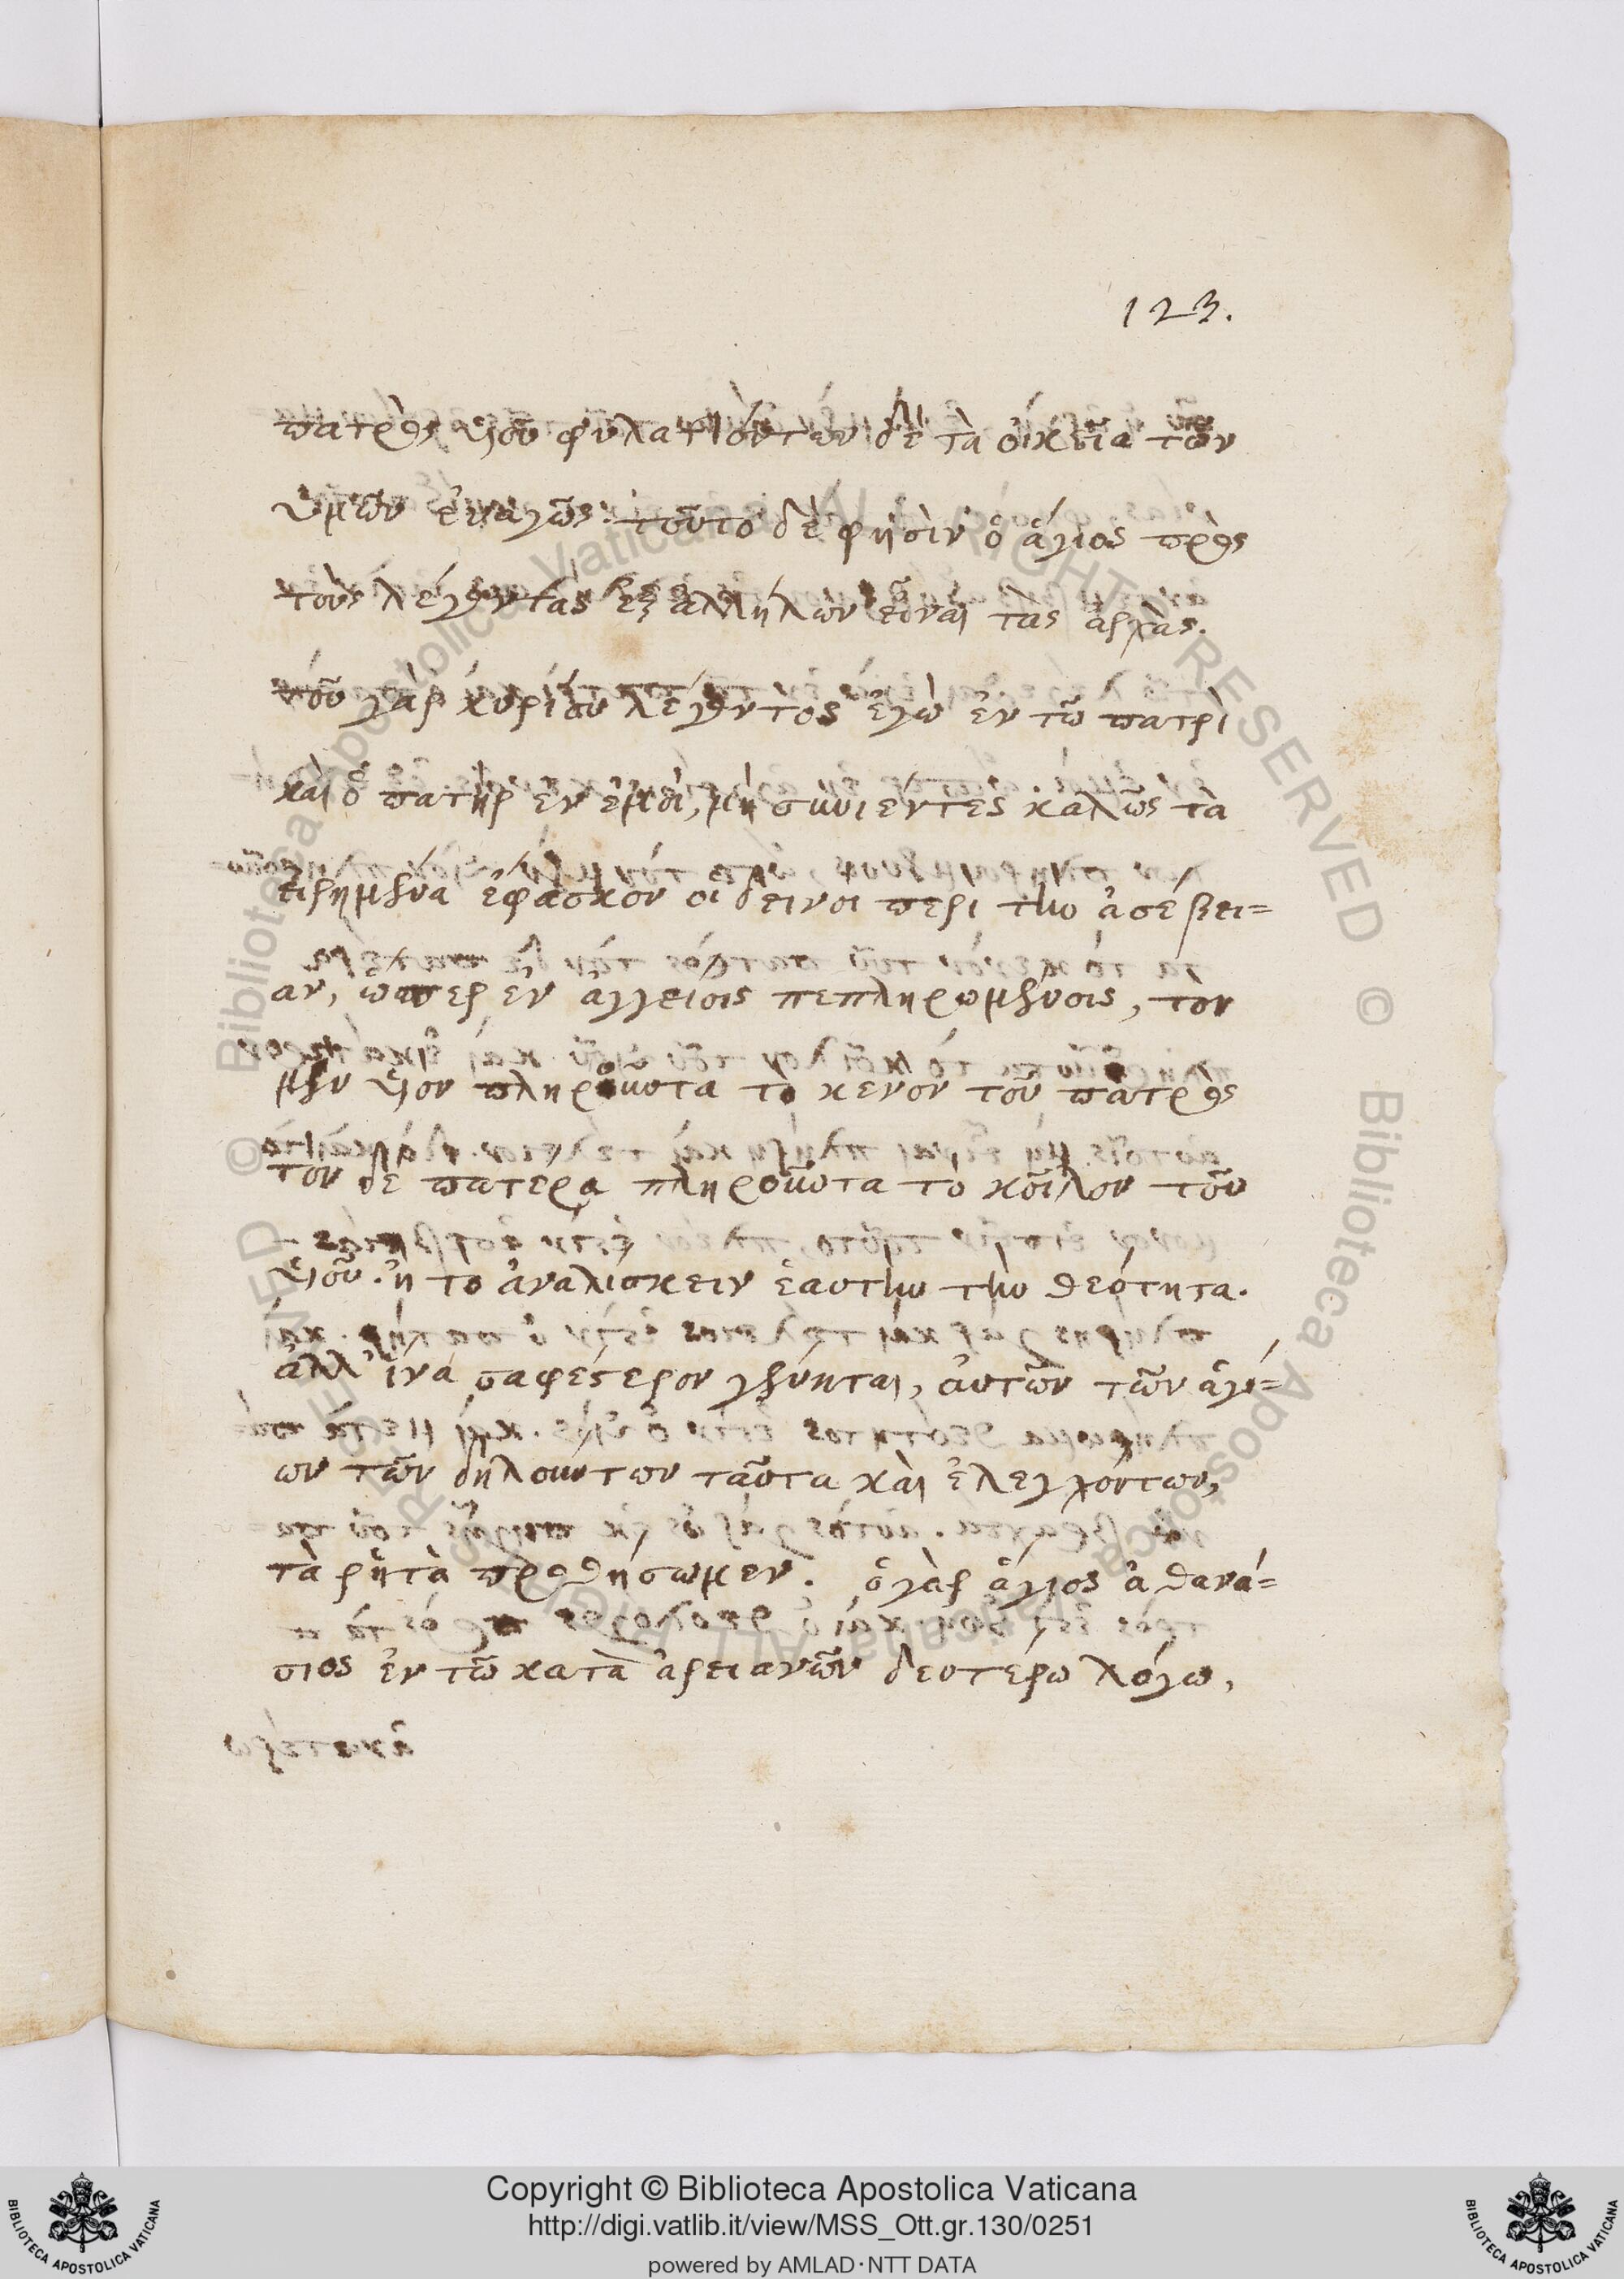 123.
πατρὸς υἱοῦ φυλαττόντων δὲ τὰ οἰκεῖα τῶν
τοῦτο δέ φησιν ὁ ἅγιος πρὸς
τοὺς λέγοντας ἐξ ἀλλήλων εἶναι τὰς ἀρχὰς.
τοῦ γὰρ κυρίου λέγοντος ἐγὼ ἐν τῶ πατρὶ
καὶ ὁ πατὴρ ἐν ἐμοὶ, μὴ συνιέντες καλῶς τὰ
εἰρημένα ἔφασκον οἱ δεινοὶ περὶ τὴν ἀσέβει=
αν, ὥσπερ ἐν ἀγγείοις πεπληρωμένοις, τὸν
μὲν υἱὸν πληροῦντα τὸ κενὸν τοῦ πατρὸς
τὸν δὲ πατέρα πληροῦντα τὸ κοῖλον τοῦ
υἱοῦ. ἢ τὸ ἀναλίσκειν ἑαυτὴν τὴν θεότητα.
ἀλλ' ἵνα σαφέστερον γένηται, αὐτῶν τῶν ἁγί=
ων τῶν δηλούντων ταῦτα καὶ ἐλεγχόντων,
τὰ ῥητὰ προθήσωμεν. ὁ γὰρ ἅγιος ἀθανά=
σιος ἐν τῶ κατὰ ἀρειανῶν δευτέρω λόγω,
Copyright © Biblioteca Apostolica Vaticana
http://digi.vatlib.it/view/MSS_Ott.gr.130/0251
powered by AMLAD·NTT DATA
BIBLIOTECA APOSTOLICA VATICANA
BIBLIOTECA APOSTOLICA VATICANA